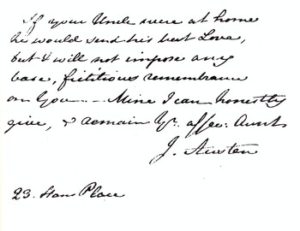 If your Uncle were at home
he would send his best Love,
but I will not impose any
base, fictitious remembrance
on You. — Mine I can honestly
give, & remain Yr. affec: Aunt
J. Austen
23. Hans Place